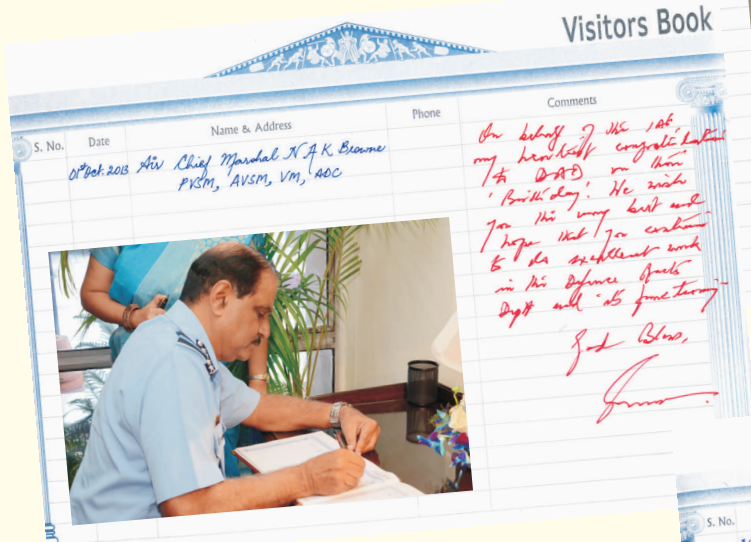 Visitors Book
S. No. Date Name & Address Phone Comments
01st Oct. 2013 Air Chief Marshal N A K Browne
PVSM, AVSM, VM, ADC
On behalf of the IAF
my heartiest congratulations
to DAD on their
'Birthday'. We wish
you the very best and
hope that you continue
to do excellent work
in the Defence Accts
Deptt and its functioning
God Bless,
S. No.